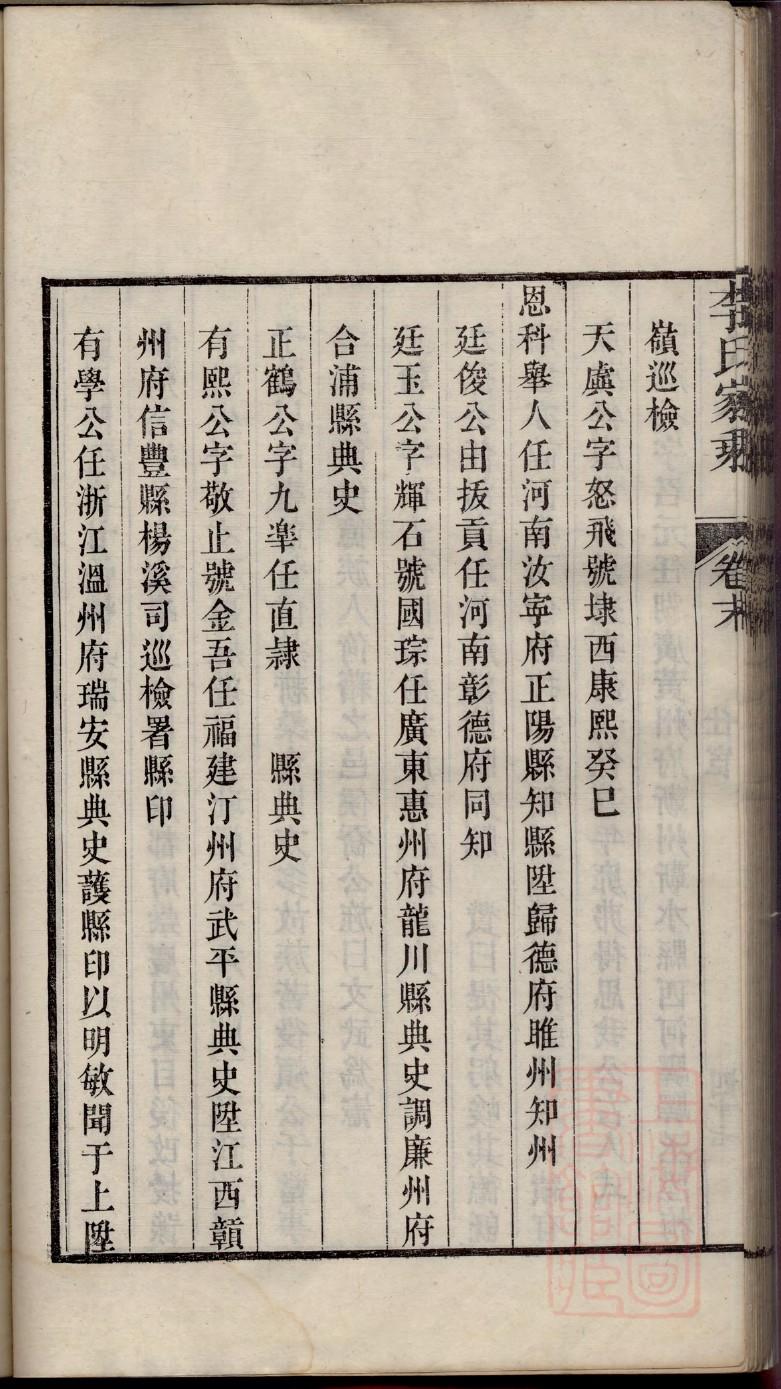 李氏家乘 卷末
嶺巡檢
天虞公字怒飛號埭西康熙癸巳
恩科舉人任河南汝寧府正陽縣知縣陞歸德府睢州知州
廷俊公由拔貢任河南彰德府同知
廷玉公字輝石號國琮任廣東惠州府龍川縣典史調廉州府
合浦縣典史
正鶴公字九臯任直隷 縣典史
有熙公字敬止號金吾任福建汀州府武平縣典史陞江西贛
州府信豐縣楊溪司巡檢署縣印
有學公任浙江溫州府瑞安縣典史護縣印以明敏聞于上陞